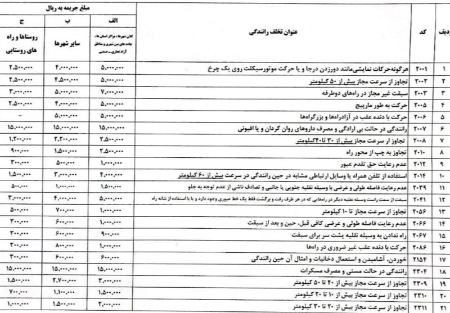 مبلغ جریمه به ریال
ردیف کد عنوان تخلف رانندگی الف ب ج
سایر شهرها روستاها و راه های روستایی
۱ ۲۰۰۱ هرگونه حرکات نمایشی مانند دورزدن درجا و یا حرکت موتورسیکلت روی یک چرخ ۵,۰۰۰,۰۰۰ ۴,۰۰۰,۰۰۰ ۲,۵۰۰,۰۰۰
۲ ۲۰۰۲ تجاوز از سرعت مجاز بیش از ۵۰ کیلومتر ۵,۰۰۰,۰۰۰ ۴,۰۰۰,۰۰۰ ۲,۵۰۰,۰۰۰
۳ ۲۰۰۳ سبقت غیر مجاز در راه‌های دوطرفه ۷,۰۰۰,۰۰۰ ۵,۰۰۰,۰۰۰ ۳,۰۰۰,۰۰۰
۴ ۲۰۰۵ حرکت به طور مارپیچ ۵,۰۰۰,۰۰۰ ۴,۰۰۰,۰۰۰ ۲,۵۰۰,۰۰۰
۵ ۲۰۰۶ حرکت با دنده عقب در آزادراه‌ها و بزرگراه‌ها ۵,۰۰۰,۰۰۰ ۵,۰۰۰,۰۰۰ -
۶ ۲۰۰۷ رانندگی در حالت بی ارادگی و مصرف داروهای روان گردان و یا افیونی ۱۵,۰۰۰,۰۰۰ ۱۵,۰۰۰,۰۰۰ ۱۵,۰۰۰,۰۰۰
۷ ۲۰۰۸ تجاوز از سرعت مجاز بیش از ۳۰ تا ۴۰ کیلومتر ۲,۵۰۰,۰۰۰ ۲,۲۰۰,۰۰۰ ۱,۲۰۰,۰۰۰
۸ ۲۰۱۰ تجاوز به چپ از محور راه ۲,۵۰۰,۰۰۰ ۱,۵۰۰,۰۰۰ ۹۰۰,۰۰۰
۹ ۲۰۱۲ عدم رعایت حق تقدم عبور ۱,۰۰۰,۰۰۰ ۵۰۰,۰۰۰ ۳۰۰,۰۰۰
۱۰ ۲۰۱۴ استفاده از تلفن همراه یا وسایل ارتباطی مشابه در حین رانندگی در سرعت بیش از ۶۰ کیلومتر ۴,۰۰۰,۰۰۰ ۳,۰۰۰,۰۰۰ ۱,۵۰۰,۰۰۰
۱۱ ۲۰۳۹ عدم رعایت فاصله طولی و عرضی با وسیله نقلیه جنوبی یا جانبی و تصادف ناشی از عدم توجه به جلو ۱,۵۰۰,۰۰۰ ۱,۰۰۰,۰۰۰ ۵۰۰,۰۰۰
۱۲ ۲۰۴۱ سبقت از سمت راست وسیله نقلیه دیگر در راه‌هایی که در هر طرف رفت و برگشت فقط یک خط عبوری وجود دارد و یا با استفاده از شانه راه ۵,۰۰۰,۰۰۰ ۴,۰۰۰,۰۰۰ ۳,۰۰۰,۰۰۰
۱۳ ۲۰۵۶ تجاوز از سرعت مجاز تا ۱۰ کیلومتر ۱,۰۰۰,۰۰۰ ۷۰۰,۰۰۰ ۵۰۰,۰۰۰
۱۴ ۲۰۶۶ عدم رعایت فاصله طولی و عرضی کافی قبل، حین و بعد از سبقت ۱,۰۰۰,۰۰۰ ۶۰۰,۰۰۰ ۳۰۰,۰۰۰
۱۵ ۲۰۶۷ راه ندادن به وسیله نقلیه پشت سر برای سبقت ۹۰۰,۰۰۰ ۶۰۰,۰۰۰ ۳۰۰,۰۰۰
۱۶ ۲۰۸۶ حرکت با دنده عقب غیر ضروری در راه‌ها ۱,۰۰۰,۰۰۰ ۸۰۰,۰۰۰ ۳۰۰,۰۰۰
۱۷ ۲۱۵۴ خوردن، آشامیدن و استعمال دخانیات و امثال آن حین رانندگی ۶۰۰,۰۰۰ ۶۰۰,۰۰۰ ۳۰۰,۰۰۰
۱۸ ۲۳۰۴ رانندگی در حالت مستی و مصرف مسکرات ۱۵,۰۰۰,۰۰۰ ۱۵,۰۰۰,۰۰۰ ۱۵,۰۰۰,۰۰۰
۱۹ ۲۳۰۹ تجاوز از سرعت مجاز بیش از ۴۰ تا ۵۰ کیلومتر ۳,۰۰۰,۰۰۰ ۲,۷۰۰,۰۰۰ ۱,۵۰۰,۰۰۰
۲۰ ۲۳۱۰ تجاوز از سرعت مجاز بیش از ۱۰ تا ۲۰ کیلومتر ۱,۵۰۰,۰۰۰ ۱,۱۰۰,۰۰۰ ۷۰۰,۰۰۰
۲۱ ۲۳۱۱ تجاوز از سرعت مجاز بیش از ۲۰ تا ۳۰ کیلومتر ۲,۰۰۰,۰۰۰ ۱,۵۰۰,۰۰۰ ۱,۰۰۰,۰۰۰